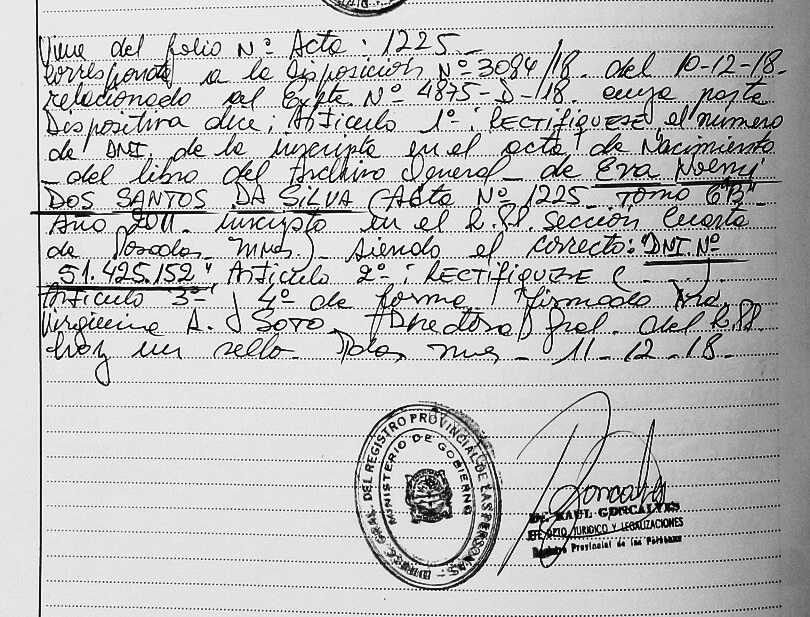 Viene del folio Nº Acta: 1225_
Corresponde a la Disposición Nº 3084/18. del 10-12-18-
relacionado al Expte Nº 4875-D-18 cuya parte
Dispositiva dice; Articulo 1º-: RECTIFIQUESE el número
de DNI. de la inscripta en el acta de Nacimiento
_ del libro del Archivo General_ de Eva Noemi
DOS SANTOS DA SILVA (Acta Nº 1225_ Tomo 6"B"
Año 2011_ inscripto en el R.P. Sección Cuarta
de Posadas_ Mnes.)_ siendo el correcto: "DNI Nº
51.425.152", Articulo 2º-: RECTIFIQUESE (...)
Articulo 3º- y 4º de forma Firmado Dra.
Virginia A. SOTO_ Directora Gral. del R.P.
hay un sello_ Pdas Mnes_ 11-12-18-
DIREC. GRAL. DEL REGISTRO PROVINCIAL DE LAS PERSONAS
MINISTERIO DE GOBIERNO
Goncalves
Dr. RAUL GONCALVES
JEFE DPTO JURIDICO Y LEGALIZACIONES
Registro Provincial de las Personas